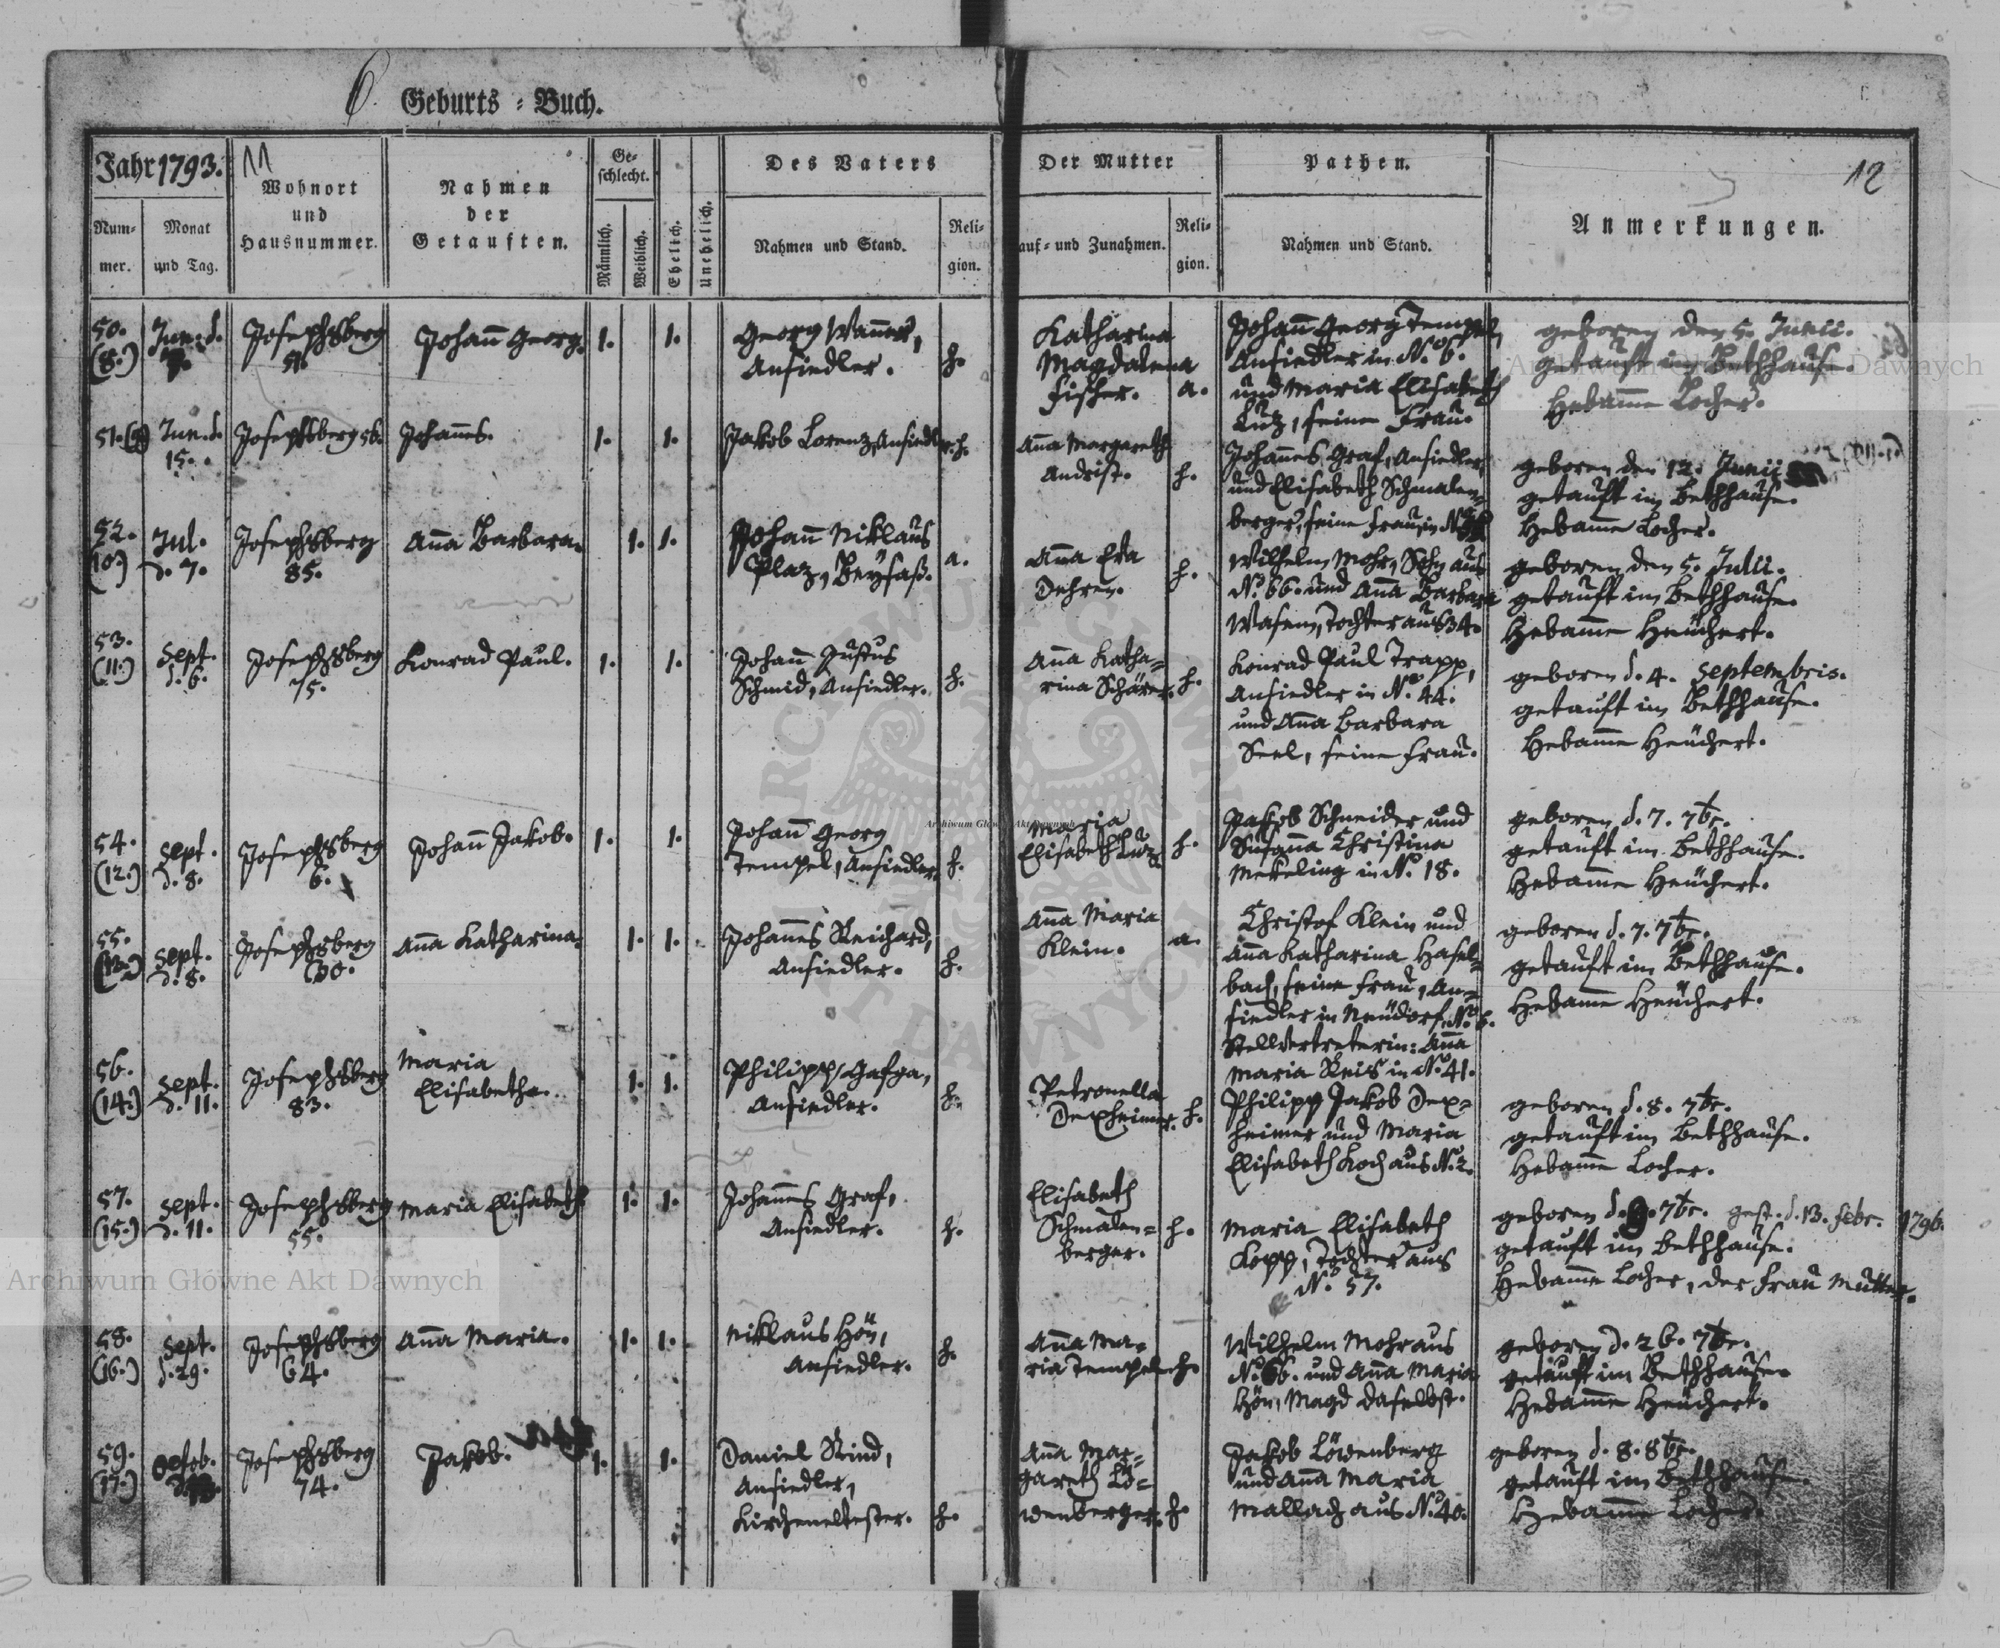 6. Geburts = Buch.
Jahr 1793.
11
12
Num=
mer.
Monat
und Tag.
Wohnort
und
Hausnummer.
Nahmen
der
Getauften.
Ge=
schlecht.
Männlich.
Weiblich.
Ehelich.
Unehelich.
Des Vaters
Nahmen und Stand.
Reli=
gion.
Der Mutter
auf= und Zunahmen.
Reli=
gion.
Pathen.
Nahmen und Stand.
Anmerkungen.
50.
(8.)
Jun. d.
7.
Josephsberg
51.
Johann Georg.
1.
1.
Georg Wanner,
Ansiedler.
h.
Katharina
Magdalena
Fischer.
a.
Johann Georg Tempel,
Ansiedler in No. 6.
und Maria Elisabeth
Luz, seine Frau.
geboren den 5. Junii.
getauft im Bethhause.
Hebamme Locher.
51. (9)
Jun. d.
15.
Josephsberg 56.
Johannes.
1.
1.
Jakob Lorenz, Ansiedler.
h.
Anna Margareth
Andrist.
h.
Johannes Graf, Ansiedler
und Elisabeth Schmalen=
berger, seine Frau, in No.
geboren den 12. Junii
getauft im Bethhause.
Hebamme Locher.
52.
(10.)
Jul.
d. 7.
Josephsberg
85.
Anna Barbara.
1.
1.
Johann Niklaus
Plaz, Beysaß.
a.
Anna Eva
Dehren.
h.
Wilhelm Mohr, Sohn aus
No. 66. und Anna Barbara
Wasem, Tochter aus 34.
geboren den 5. Julii.
getauft im Bethhause.
Hebamme Heuchert.
53.
(11.)
Sept.
d. 6.
Josephsberg
75.
Konrad Paul.
1.
1.
Johann Justus
Schmid, Ansiedler.
h.
Anna Katha=
rina Schärer.
h.
Konrad Paul Trapp,
Ansiedler in No. 44.
und Anna Barbara
Seel, seine Frau.
geboren d. 4. Septembris.
getauft im Bethhause.
Hebamme Heuchert.
54.
(12.)
Sept.
d. 8.
Josephsberg
6.
Johann Jakob.
1.
1.
Johann Georg
Tempel, Ansiedler.
h.
Maria
Elisabeth Luz
h.
Jakob Schneider und
Susanna Christina
Mekeling in No. 18.
geboren d. 7. 7br.
getauft im Bethhause.
Hebamme Heuchert.
55.
(13.)
Sept.
d. 8.
Josephsberg
30.
Anna Katharina.
1.
1.
Johannes Reichard,
Ansiedler.
h.
Anna Maria
Klein.
a.
Christof Klein und
Anna Katharina Hasel=
bach, seine Frau, An=
siedler in Neudorf, No. 6.
Stellvertreterin: Anna
Maria Reis in No. 41.
geboren d. 7. 7br.
getauft im Bethhause.
Hebamme Heuchert.
56.
(14.)
Sept.
d. 11.
Josephsberg
83.
Maria
Elisabetha.
1.
1.
Philipp Gafga,
Ansiedler.
h.
Petronella
Dexheimer.
h.
Philipp Jakob Dex=
heimer und Maria
Elisabeth Koch aus No. 2.
geboren d. 8. 7br.
getauft im Bethhause.
Hebamme Locher.
57.
(15.)
Sept.
d. 11.
Josephsberg
55.
Maria Elisabeth
1.
1.
Johannes Graf,
Ansiedler.
h.
Elisabeth
Schmalen=
berger.
h.
Maria Elisabeth
Kopp, Tochter aus
No. 57.
geboren d. 9. 7br. gest. d. 13. Febr. 1796.
getauft im Bethhause.
Hebamme Locher, der Frau Mutter.
58.
(16.)
Sept.
d. 29.
Josephsberg
64.
Anna Maria.
1.
1.
Niklaus Hön,
Ansiedler.
h.
Anna Ma=
ria Tempel
h.
Wilhelm Mohr aus
No. 66. und Anna Maria
Hön, Magd daselbst.
geboren d. 26. 7br.
getauft im Bethhause.
Hebamme Heuchert.
59.
(17.)
Octob.
Josephsberg
74.
Jakob.
1.
1.
Daniel Rind,
Ansiedler,
Kirchenältester.
h.
Anna Mar=
gareth Lö=
wenberger.
h.
Jakob Löwenberg
und Anna Maria
Mallach aus No. 40.
geboren d. 8. 8br.
getauft im Bethhause.
Hebamme Locher.
Archiwum Główne Akt Dawnych
Archiwum Główne Akt Dawnych
Archiwum Główne Akt Dawnych
ARCHIWUM GŁÓWNE AKT DAWNYCH